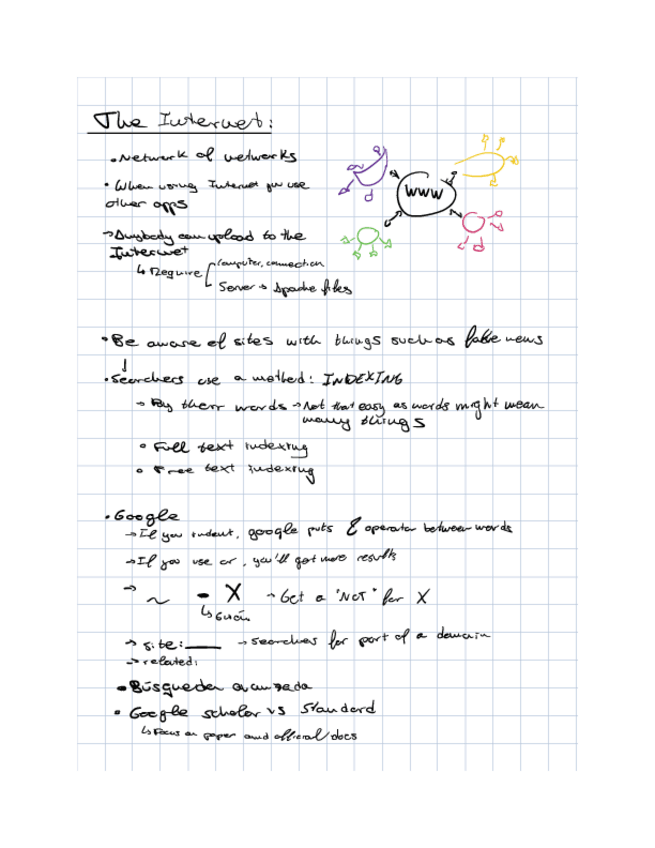 The Internet:
• Network of networks
• When using Internet you use
other apps
→ Anybody can upload to the
Internet
↳ Require
Computer, connection
Server → Apache files
www
• Be aware of sites with things such as fake news
↓
• Searchers use a method: INDEXING
→ By their words → Not that easy as words might mean
many things
• Full text indexing
• Free text indexing
• Google
→ If you, google puts & operator between words
→ If you use or, you'll get more results
→ ~ - X → Get a "NOT" for X
↳ Guión
→ site:____ → searches for part of a domain
→ related:
• Búsqueda avanzada
• Google scholar vs Standard
↳ Focus on paper and official docs